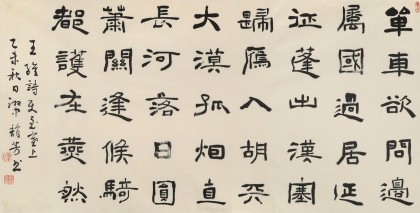 單車欲問邊
屬國過居延
征蓬出漢塞
歸雁入胡天
大漠孤烟直
長河落日圓
蕭關逢候騎
都護在燕然
王維詩使至塞上
乙未秋日